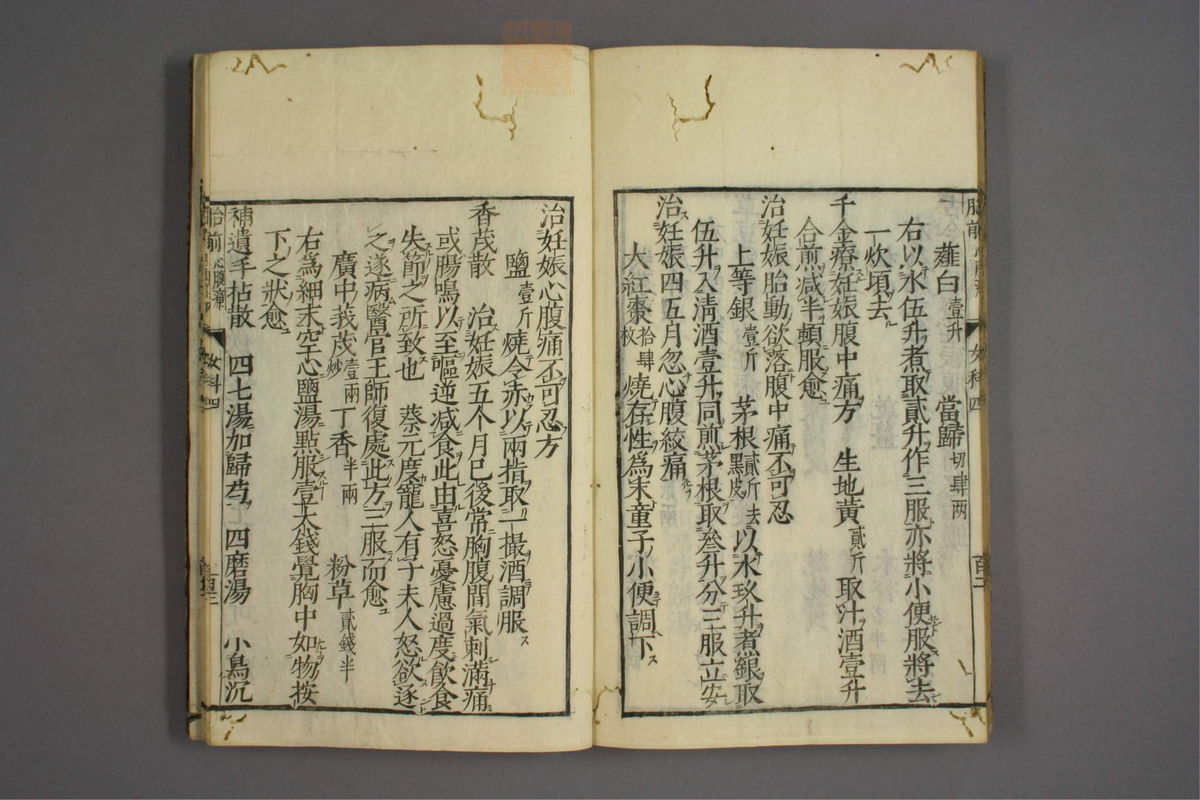 薤白壹升 當歸切肆兩
右以水伍升煮取貳升作三服亦將小便服將去
一炊頃去
千金療妊娠腹中痛方 生地黃貳斤 取汁酒壹升
合煎減半頓服愈
治妊娠胎動欲落腹中痛不可忍
上等銀壹斤 茅根貳斤去黑皮 以水玖升煮銀取
伍升入清酒壹升同煎茅根取叁升分三服立安
治妊娠四五月忽心腹絞痛
大紅棗拾肆枚 燒存性爲末童子小便調下
女科四
百二
治妊娠心腹痛不可忍方
鹽壹斤 燒令赤以兩指取一撮酒調服
香茂散 治妊娠五个月已後常胸腹間氣刺滿痛
或腸鳴以至嘔逆減食此由喜怒憂慮過度飲食
失節之所致也 蔡元度寵人有子夫人怒欲逐
之遂病醫官王師復處此方三服而愈
廣中莪茂壹兩炒 丁香半兩 粉草貳錢半
右爲細末空心鹽湯點服壹大錢覺胸中如物按
下之狀愈
補遺手拈散 四七湯加歸芎 四磨湯 小烏沉
胎前心腹痛 女科四